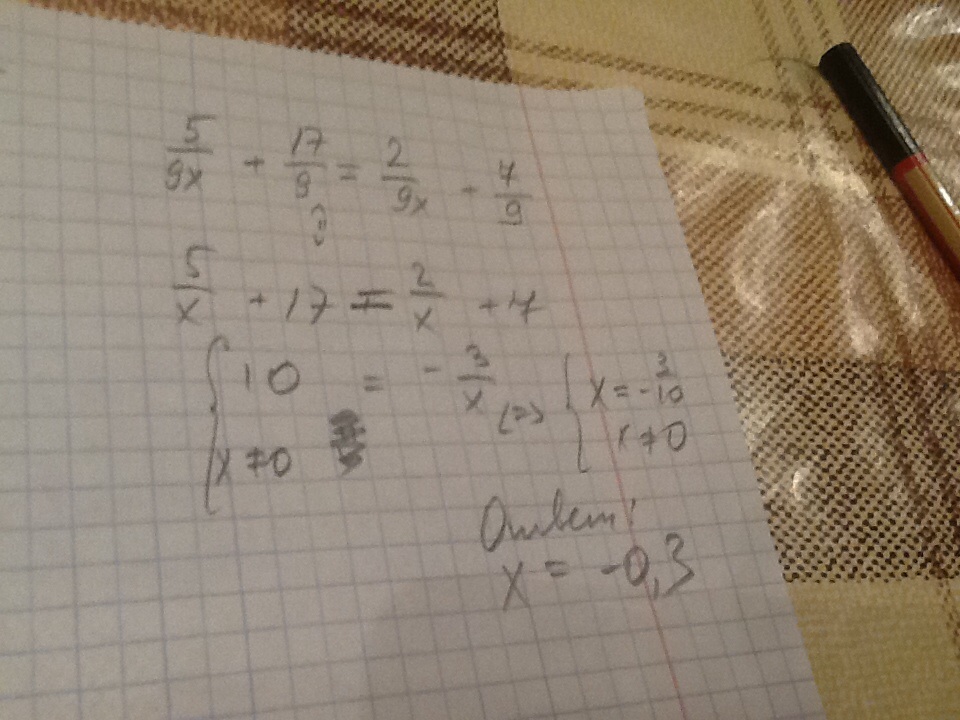 5/9x + 17/9 = 2/9x - 7/9
5/x + 17 = 2/x + 7
{ 10 = - 3/x <=> { x = - 3/10
x ≠ 0 x ≠ 0
Ответ:
x = -0,3